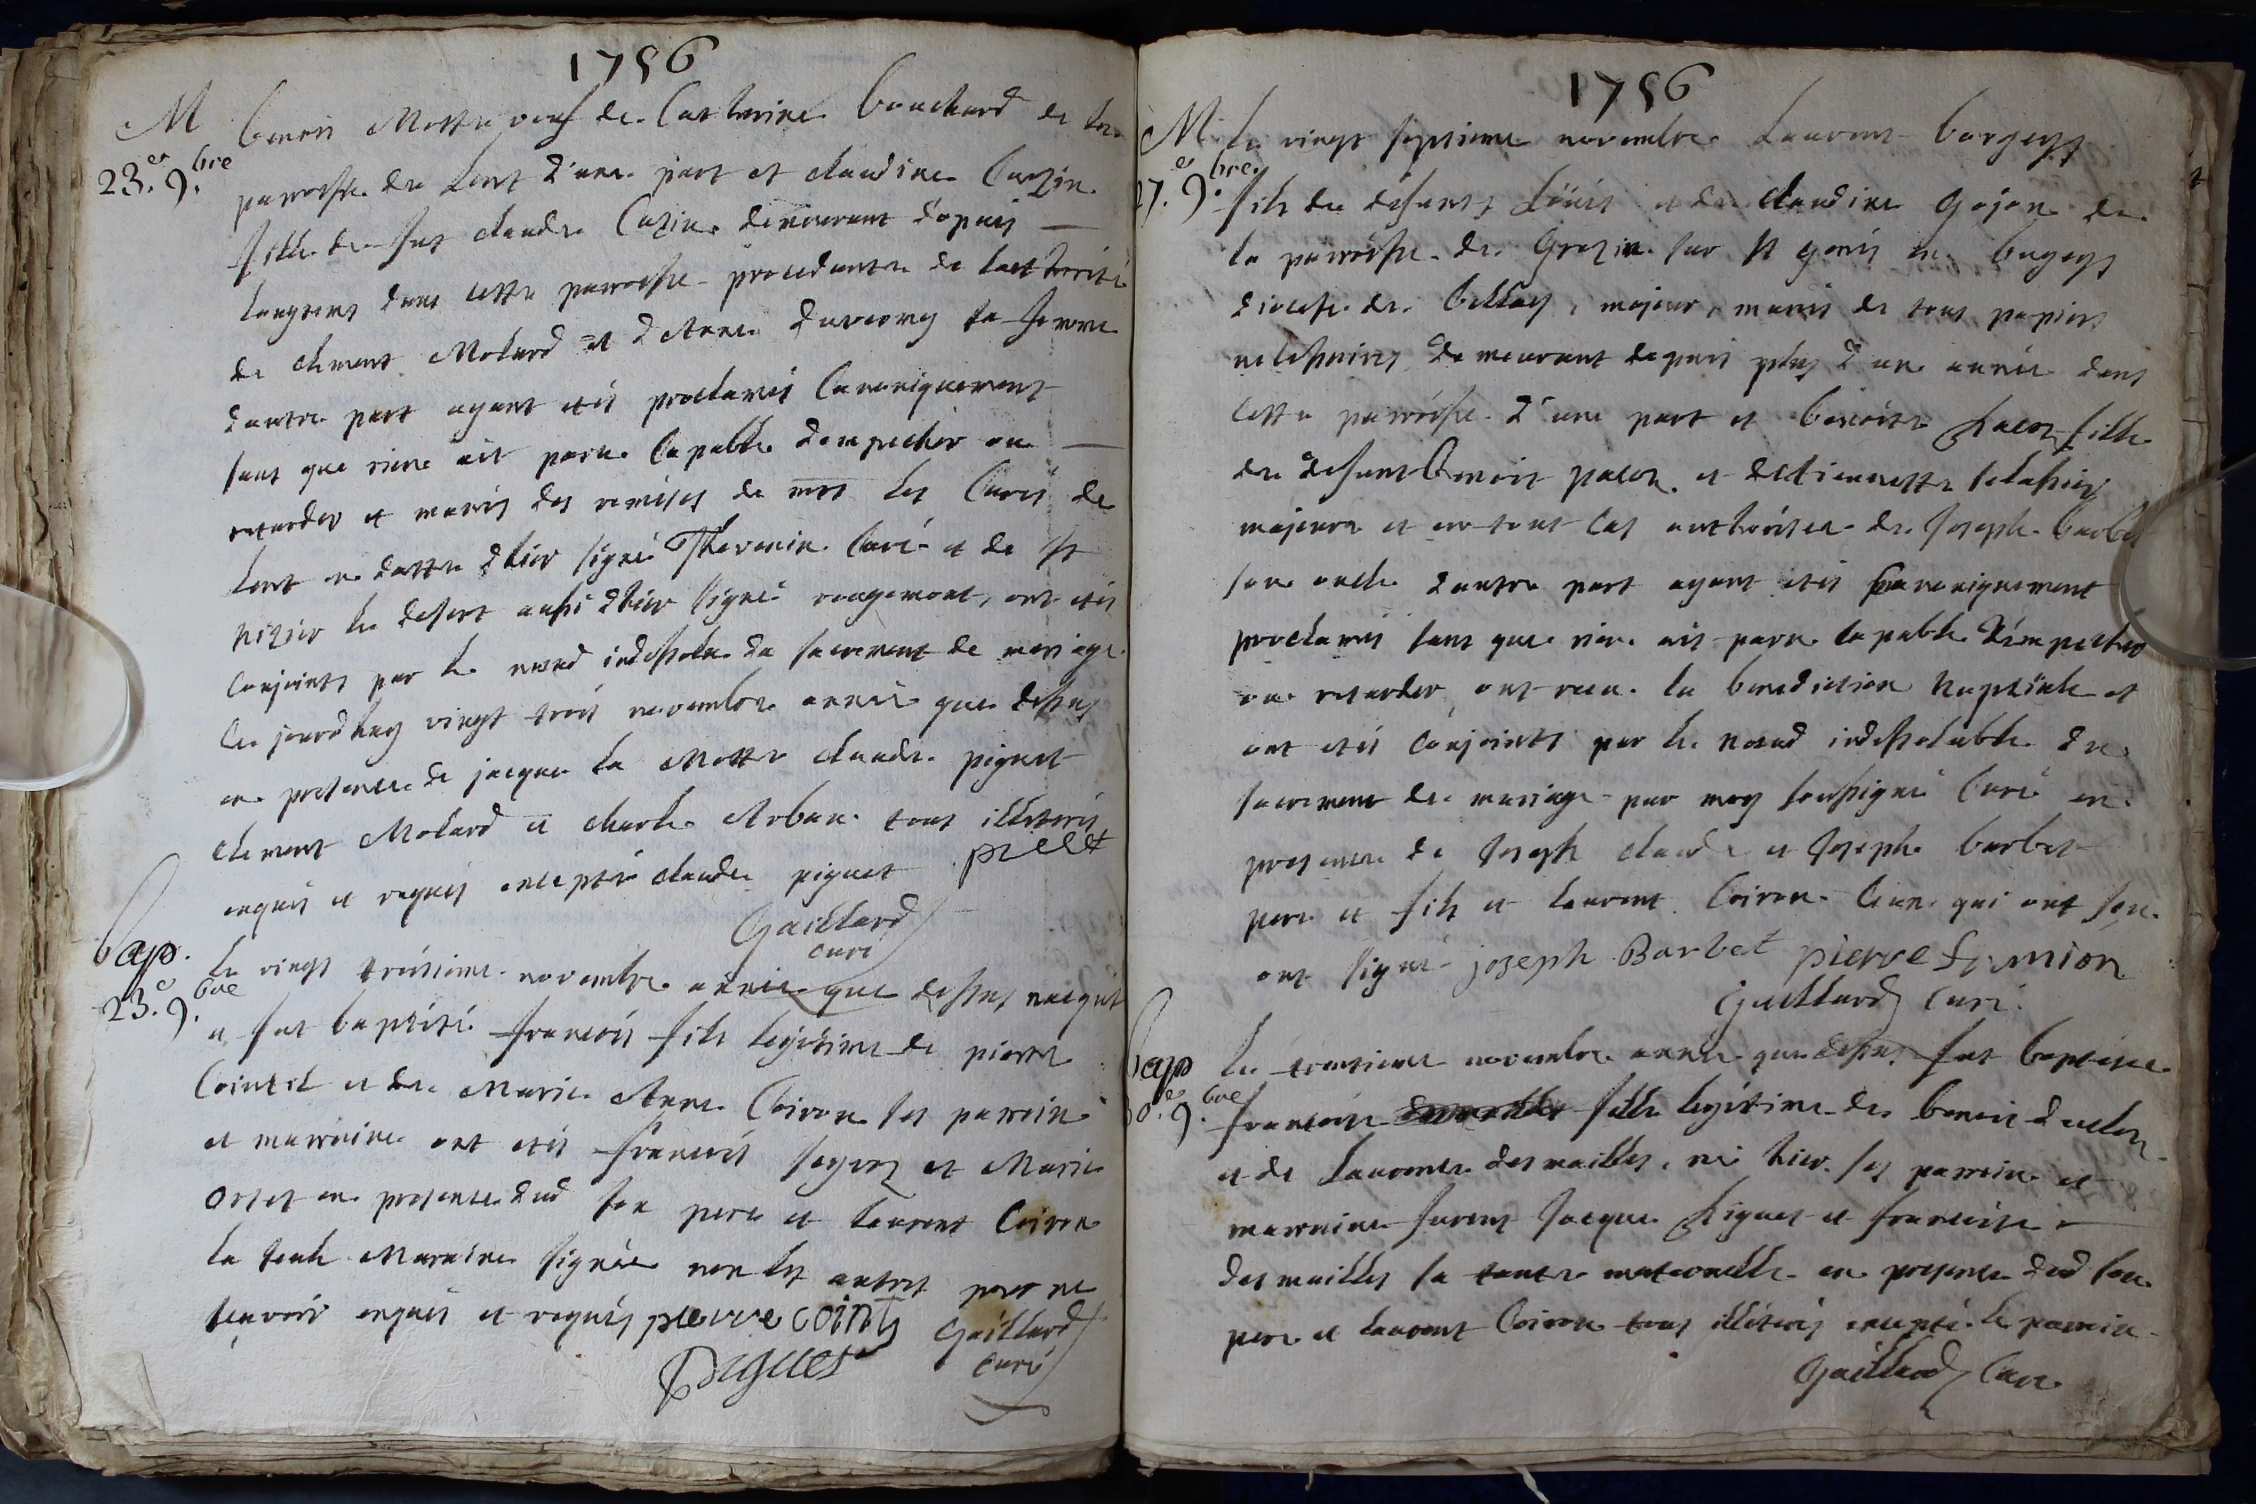 1756
M
23.e 9.bre
benoit Motte veuf de Catherine bouchard de la
paroisse de Lent d'une part et claudine Cuzin
fille de fut claude Cuzin demeurant depuis
longtems dans cette paroisse procedante de l'autthorité
de clement Mokard et d'Anne sa femme
d'autre part ayant etés proclamés Canoniquement
sans que rien ait paru Capable d'empecher ou
retarder et munis des remises de mrs les Curés de
Lent en datte d'hier signé Thevenin Curé et de st
nizier le desert aussi d'hier signé rougemont, ont etés
Conjoints par le noeud indissolu du sacrement de mariage
ce jourdhuy vingt trois novembre année que dessus
en presence de jacque la Motte claude piguet
clement Mokard et charle Arban tous illiterés
enquis et requis excepté claude piguet piget
Gaillard
curé
bap.
23.e 9.bre
Le vingt troisieme novembre année que dessus naquit
et fut baptisé francois fils legitime de pierre
Cointet et de Marie Anne Coiron ses parrain
et marraine ont etés francois et Marie
orset en presence dud son pere et Laurent Coiron
la seule Maraine signée non les autres pour ne
sçavoir enquis et requis pierre cointy Gaillard
piguet curé
1756
M
27.e 9.bre
Le vingt septieme novembre Laurent
fils de défunts Loüis et de claudine Gojon de
la paroisse de Grezin sur st genis en bugeys
diocese de bellay, majeur, munis de tous papiers
necessaires demeurant depuis plus d'une année dans
cette paroisse d'une part et benoite pacoz fille
de defunt Benoit pacoz et d'etiennette
majeure et en tout cas authorisée de Joseph barbet
son oncle d'autre part ayant etés Canoniquement
proclamés sans que rien ait paru Capable d'empecher
ou retarder ont recu la benediction nuptiale et
ont etés Conjoints par le noeud indissoluble du
sacrement de mariage par moy soussigné Curé en
presence de Joseph claude et Joseph barbet
pere et fils et Laurent Coiron Ceux qui ont sçu
ont signé joseph Barbet pierre
Gaillard Curé.
bap
30.e 9.bre
Le trentieme novembre année que dessus fut baptisée
francoise fille legitime de benoit duclos
et de Laurence desmailles, né hier ses parrain et
marraine furent Jacque piguet et francoise
des mailles sa tante maternelle en presence dud son
pere et Laurent Coiron tous illiterés excepté le parrain
Gaillard Curé